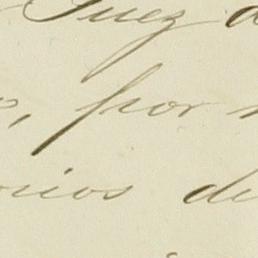 Juez
, por
rios de